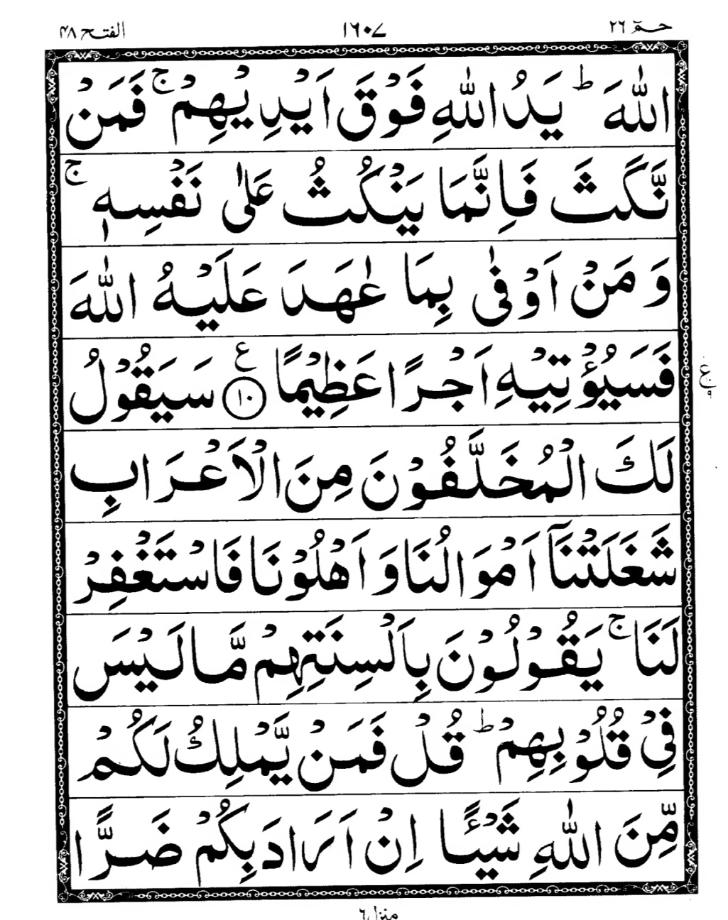 الفتح ٤٨ ١٦٠٧ حٰمٓ ٢٦
اللّٰهَ ؕ يَدُ اللّٰهِ فَوْقَ اَيْدِيْهِمْ ۚ فَمَنْ
نَّكَثَ فَاِنَّمَا يَنْكُثُ عَلٰى نَفْسِهٖ ۚ
وَ مَنْ اَوْفٰى بِمَا عٰهَدَ عَلَيْهُ اللّٰهَ
فَسَيُؤْتِيْهِ اَجْرًا عَظِيْمًا ࣖ ﴿١٠﴾ سَيَقُوْلُ
لَكَ الْمُخَلَّفُوْنَ مِنَ الْاَعْرَابِ
شَغَلَتْنَاۤ اَمْوَالُنَا وَ اَهْلُوْنَا فَاسْتَغْفِرْ
لَنَا ۚ يَقُوْلُوْنَ بِاَلْسِنَتِهِمْ مَّا لَيْسَ
فِيْ قُلُوْبِهِمْ ؕ قُلْ فَمَنْ يَّمْلِكُ لَكُمْ
مِّنَ اللّٰهِ شَيْـًٔا اِنْ اَرَادَ بِكُمْ ضَرًّا
منزل ٦